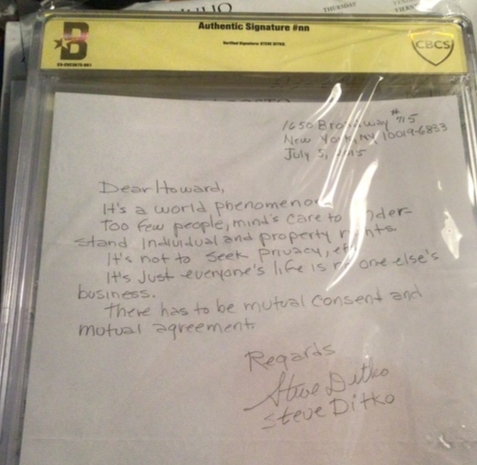 THURSDAY
Authentic Signature #nn
Verified Signature: STEVE DITKO
B
CBCS
1650 Broadway #715
New York, NY 10019-6833
July 5,
Dear Howard,
It's a world phenomenon
Too few people, mind's care to under-
stand Individual and property rights.
It's not to seek privacy, etc
It's Just everyone's life is no one else's
business.
There has to be mutual consent and
mutual agreement.
Regards
Steve Ditko
Steve Ditko